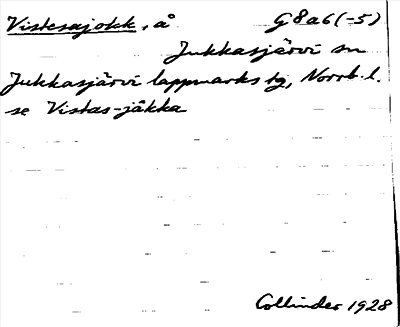 Vistesajokk, å G8a6(-5)
Jukkasjärvi sn
Jukkasjärvi lappmarks tg, Norrb. l.
se Vistas-jåkka
Collinder 1928